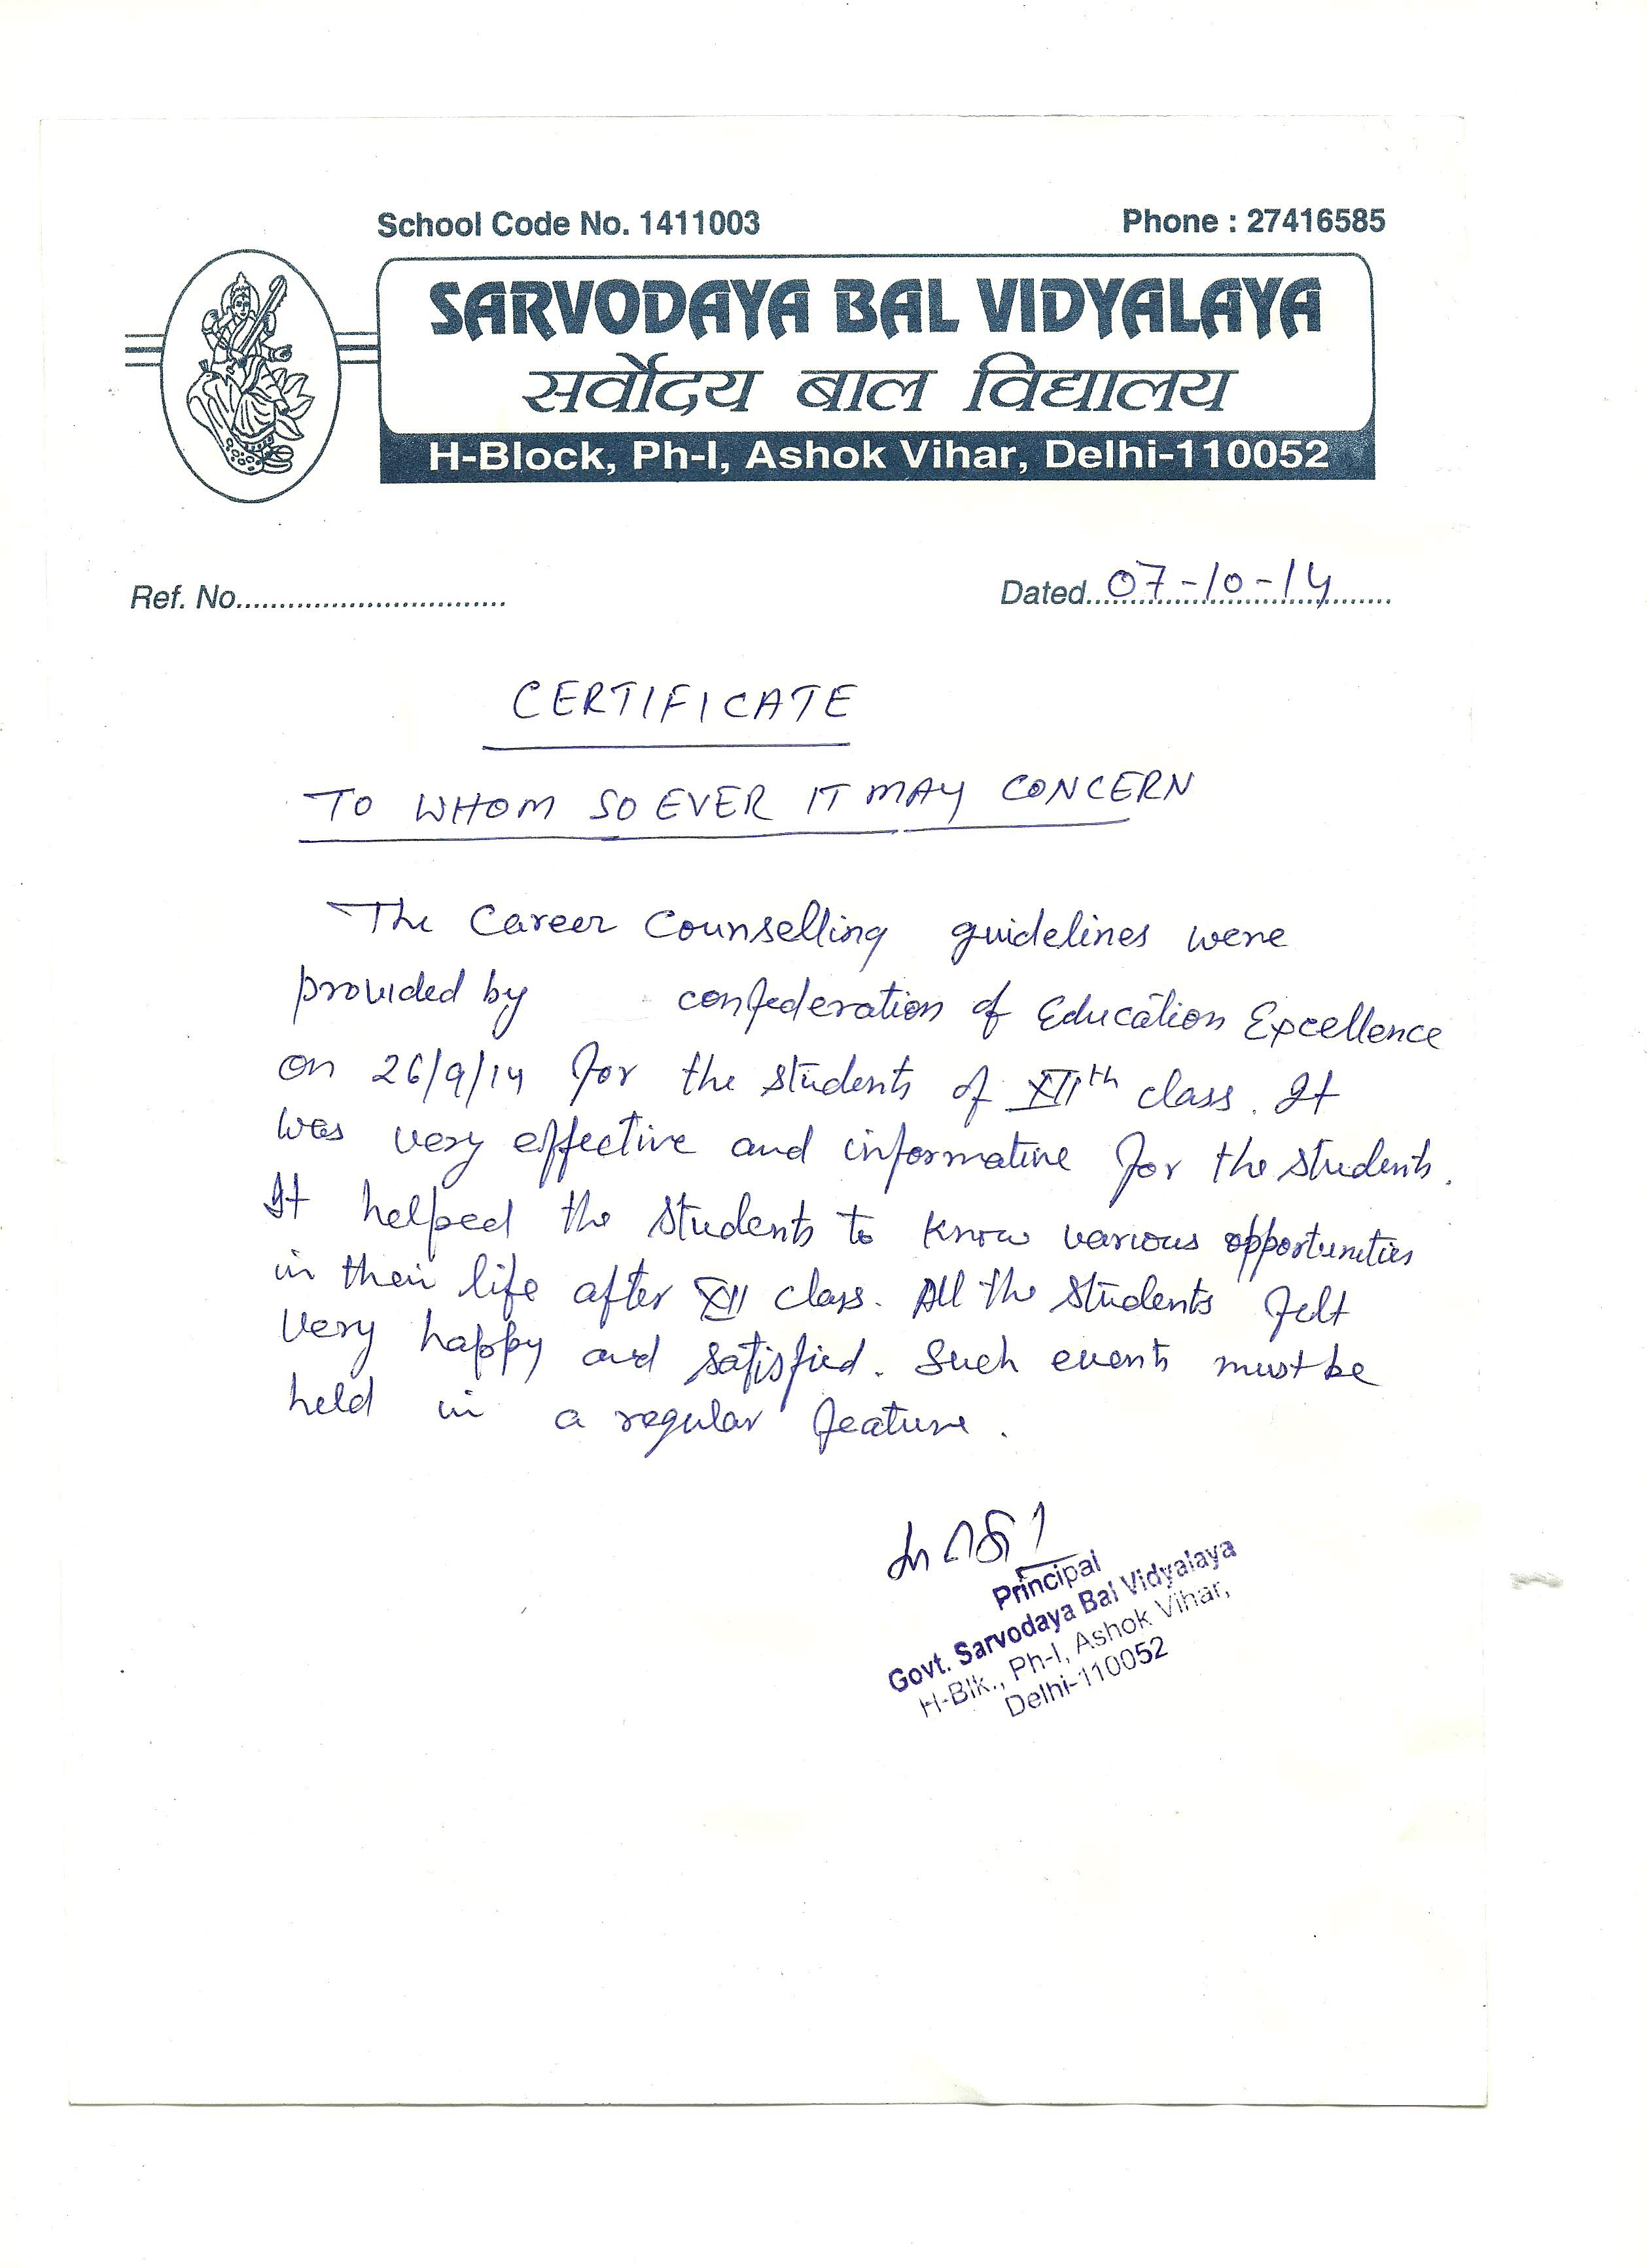 School Code No. 1411003
Phone : 27416585
SARVODAYA BAL VIDYALAYA
सर्वोदय बाल विद्यालय
H-Block, Ph-I, Ashok Vihar, Delhi-110052
Ref. No...............................
Dated..07-10-14
CERTIFICATE
TO WHOM SO EVER IT MAY CONCERN
The Career Counselling guidelines were
provided by confederation of Education Excellence
on 26/9/14 for the students of XIIth class. It
was very effective and informative for the students.
It helped the students to know various opportunities
in their life after XII class. All the students felt
very happy and satisfied. Such events must be
held in a regular feature.
Principal
Govt. Sarvodaya Bal Vidyalaya
H-Blk., Ph-I, Ashok Vihar,
Delhi-110052